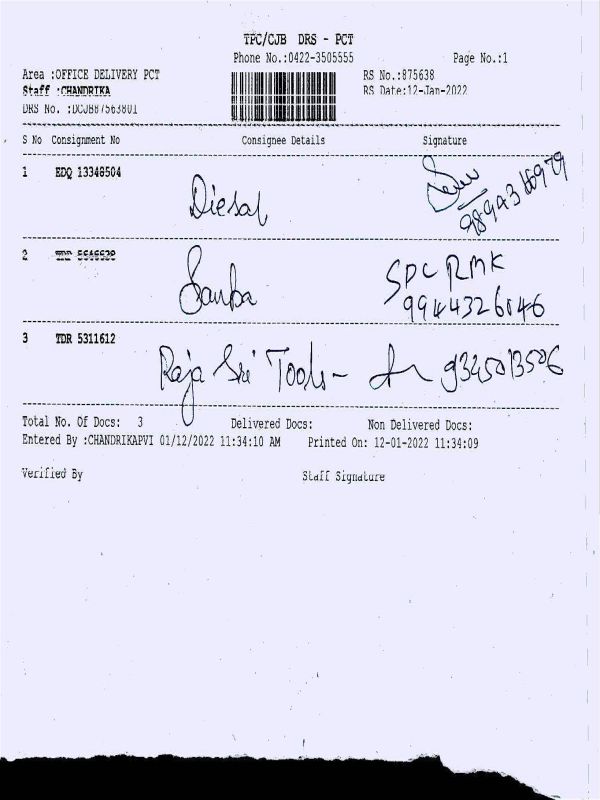 TPC/CJB DRS - PCT
Phone No.:0422-3505555 Page No.:1
Area :OFFICE DELIVERY PCT RS No.:875638
Staff :CHANDRIKA RS Date:12-Jan-2022
DRS No. :DCJB87563801
S No Consignment No Consignee Details Signature
1 EDQ 13348504 Diesal
2 Sanba SPC RMK
9944326046
3 TDR 5311612 Raja Sri Tools - 9325013506
Total No. Of Docs: 3 Delivered Docs: Non Delivered Docs:
Entered By :CHANDRIKAPVI 01/12/2022 11:34:10 AM Printed On: 12-01-2022 11:34:09
Verified By Staff Signature